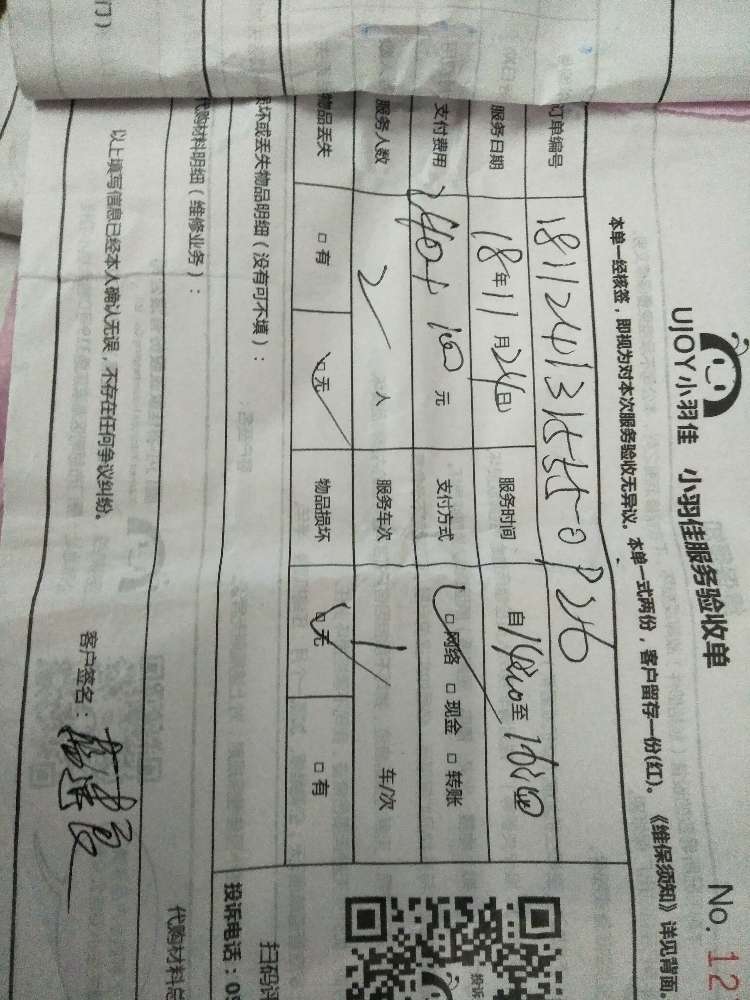 UJOY小羽佳 小羽佳服务验收单 No. 12
本单一经核签，即视为对本次服务验收无异议。本单一式两份，客户留存一份(红)。《维保须知》详见背面
订单编号
服务日期 18年11月24日 服务时间 自 至
支付费用 240+100元 支付方式 ☑网络 □现金 □转账
服务人数 2人 服务车次 1 车/次
物品丢失 □有 ☑无 物品损坏 ☑无 □有
坏或丢失物品明细（没有可不填）：
代购材料明细（维修业务）：
代购材料总
以上填写信息已经本人确认无误，不存在任何争议纠纷。
客户签名：
扫码评
投诉电话：0
投诉
门）